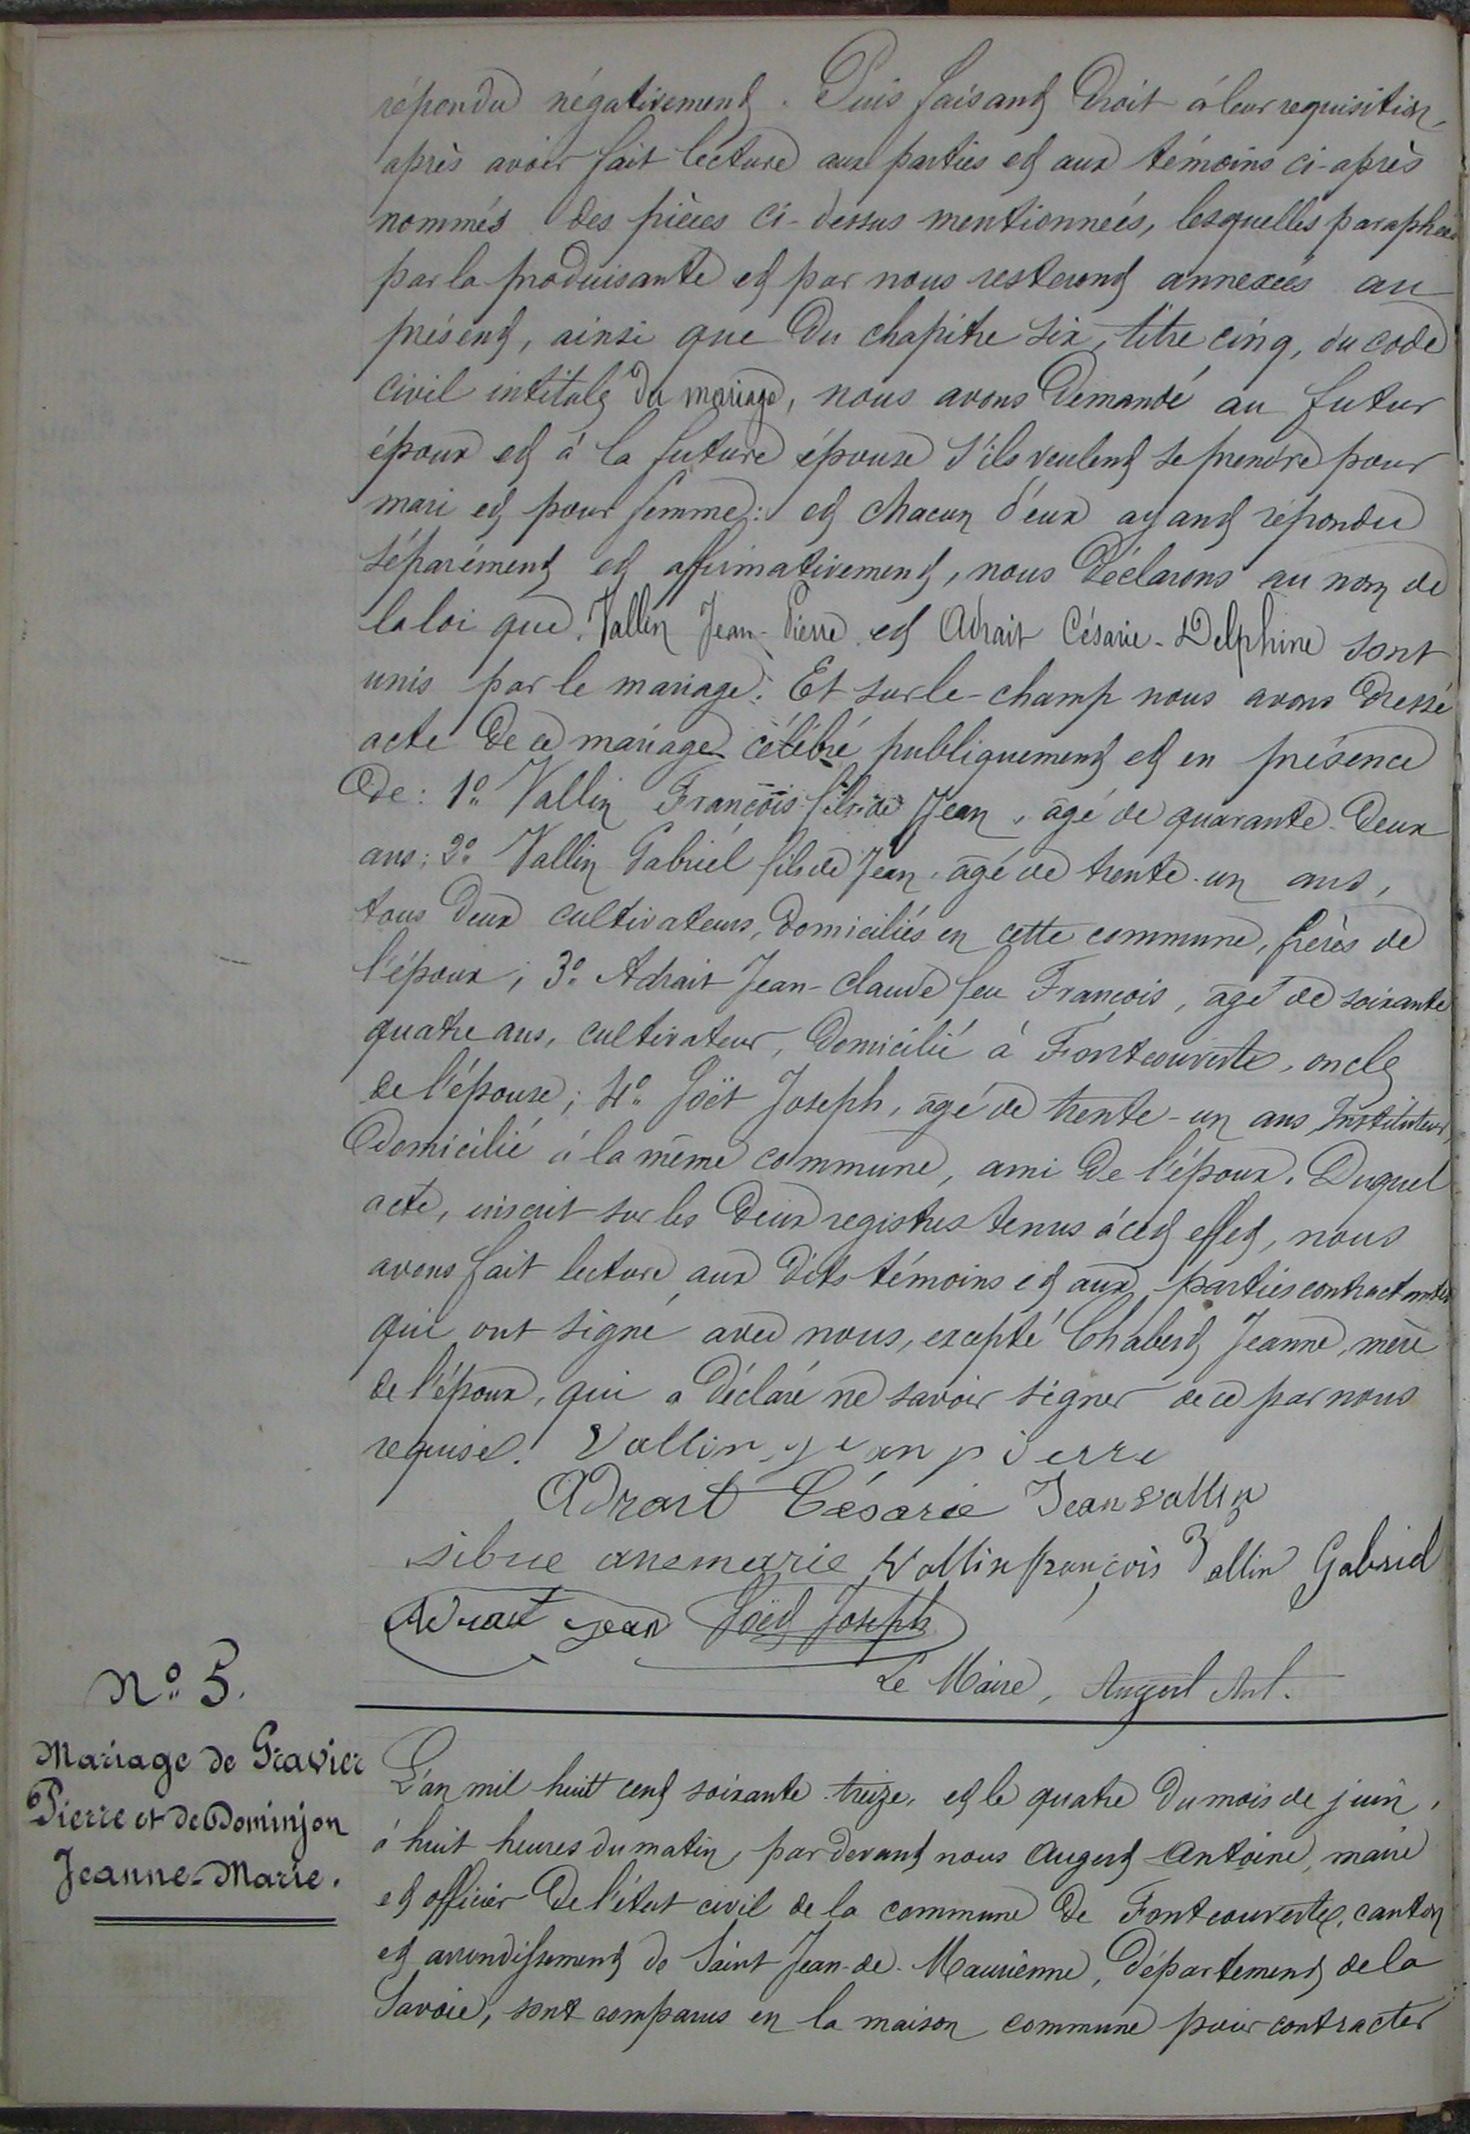 répondu négativement. Puis faisant droit à leur requisition,
après avoir fait lecture aux parties et aux témoins ci-après
nommés des pièces ci-dessus mentionneés, lesquelles paraphées
par la produisante et par nous resteront annexeés au
présent, ainsi que du chapitre six, titre cinq, du code
civil intitulé du mariage, nous avons demandé au futur
époux et à la future épouse s'ils veulent se prendre pour
mari et pour femme: et chacun d'eux ayant répondu
séparément et affirmativement, nous déclarons au nom de
la loi que Vallin Jean-Pierre et Adrait Césarie-Delphine sont
unis par le mariage. Et sur le-champ nous avons dressé
acte de ce mariage célébré publiquement et en présence
de: 1º Vallin François fils de Jean, âgé de quarante-deux
ans; 2º Vallin Gabriel fils de Jean, âgé de trente-un ans,
tous deux cultivateurs, domiciliés en cette commune, frères de
l'époux; 3º Adrait Jean-Claude feu François, âgé de soixante
quatre ans, cultivateur, domicilié à Fontcouverte, oncle
de l'épouse; 4º Joët Joseph, âgé de trente-un ans, Instituteur,
domicilié à la même commune, ami de l'époux. Duquel
acte, inscrit sur les deux registres tenus à cet effet, nous
avons fait lecture aux dits témoins et aux parties contractantes
qui ont signé avec nous, excepté Chabert Jeanne, mère
de l'époux, qui a déclaré ne savoir signer de ce par nous
requise. Vallin jean pierre
Adrait Césarie Jean Vallin
sibue anemarie Vallin françois Vallin Gabriel
Adrait Jean Joët Joseph
Le Maire, Augert Ant.
Nº 5.
Mariage de Gravier
Pierre et de Dominjon
Jeanne-Marie.
L'an mil huit cent soixante treize, et le quatre du mois de juin,
à huit heures du matin, par devant nous Augert Antoine, maire
et officier de l'état civil de la commune de Fontcouverte, canton
et arrondissement de Saint Jean-de-Maurienne, département de la
Savoie, sont comparus en la maison commune pour contracter